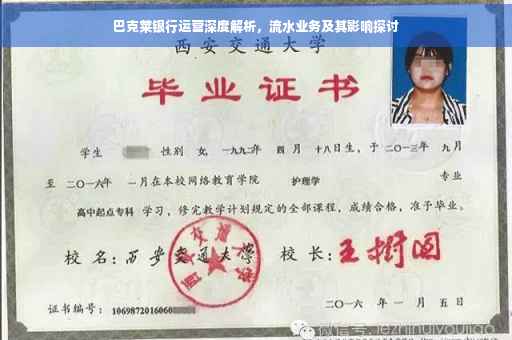 巴克莱银行运营深度解析，流水业务及其影响探讨
西安交通大学
毕业证书
学生 性别 女，一九九二年 四 月 十八日生，于 二〇一三年 九 月
至 二〇一六年 一月在本校网络教育学院 护理学 专业
高中起点专科 学习，修完教学计划规定的全部课程，成绩合格，准予毕业。
校 名：西安交通大学 校 长：王树国
西安交通大学
证书编号：1069872016060
二〇一六 年 一 月 五 日
微信号: jiezhihuiyoujiao